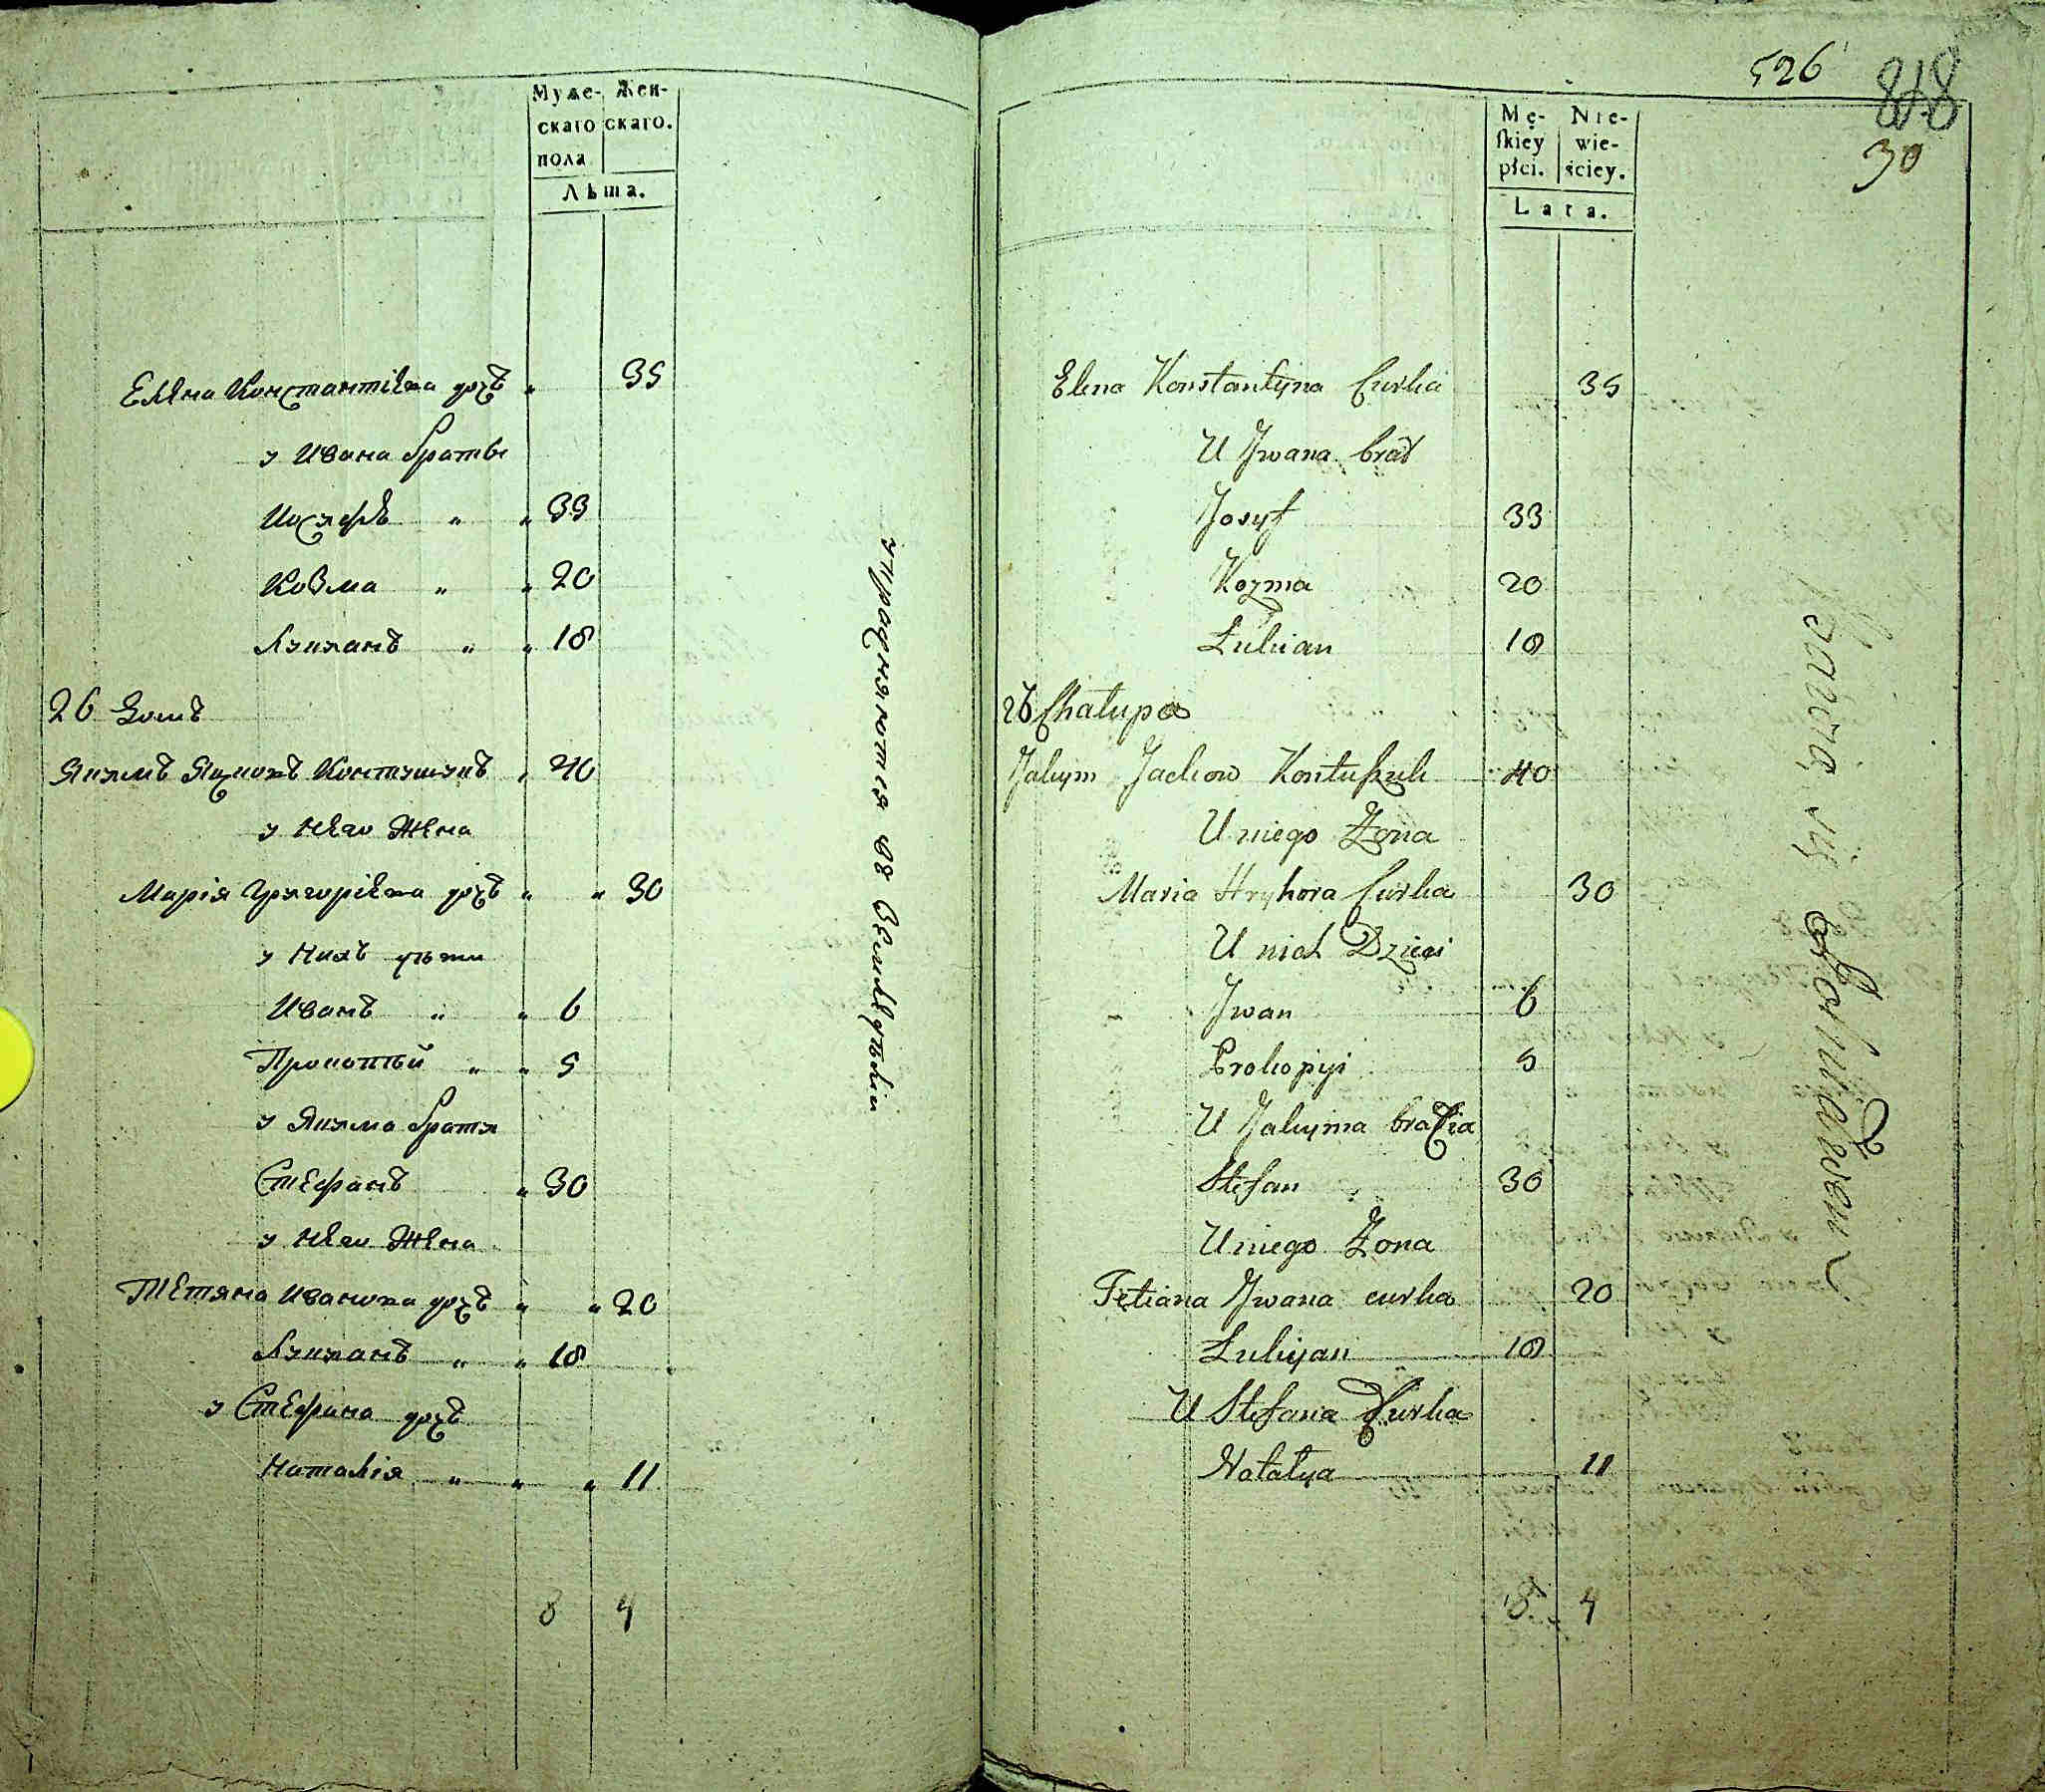 Муже- Жен-
скаго скаго.
пола
Лѣта.
Елена Константiева дочъ " 35
у Ивана братья
Иосифъ " " 33
Козма " " 20
Лукианъ " " 18
26 Домъ
Якимъ Яцковъ Контушукъ " 40
у Него Жена
Марiя Григорiева дочъ " " 30
у Нихъ дѣти
Иванъ " " 6
Прокопiй " " 5
у Якима братя
Стефанъ " 30
у Него Жена
Тетяна Иванова дочъ " " 20
Лукианъ " " 18
у Стефана дочъ
Наталiя " " " 11
8 4
упражняются въ Земледѣлiи
526
818
30
Mę- Nie-
skiey wie-
płci. ściey.
Lata.
Elena Konstantyna Curka 35
U Jwana brat
Josyf 33
Kozma 20
Łukian 18
26 Chałupa
Jakym Jackow Kontuszuk 40
U niego Żona
Maria Hryhora Curka 30
U nich Dzieci
Jwan 6
Prokopiji 5
U Jakyma bracia
Stefan 30
U niego Żona
Tetiana Jwana curka 20
Łukyan 18
U Stefana Curka
Natalya 11
8 4
Bawią się Rolnictwem